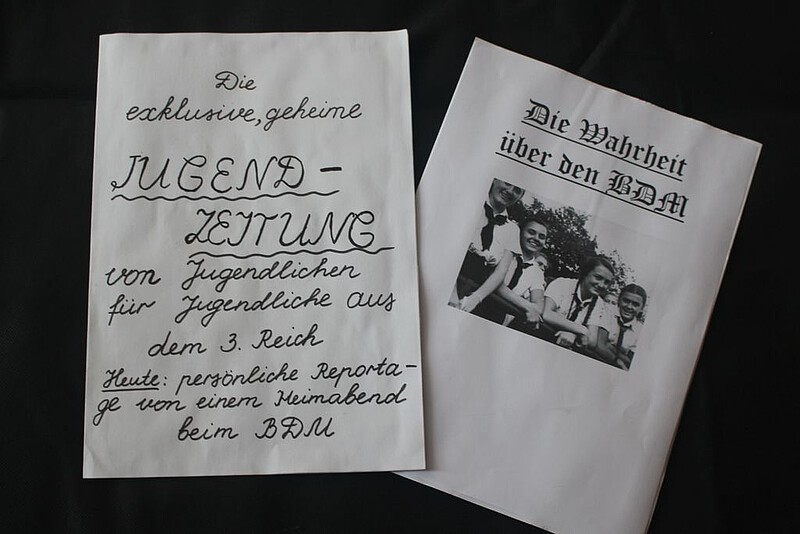 Die
exklusive, geheime
JUGEND-
ZEITUNG
von Jugendlichen
für Jugendliche aus
dem 3. Reich
Heute: persönliche Reporta-
ge von einem Heimabend
beim BDM
Die Wahrheit
über den BDM